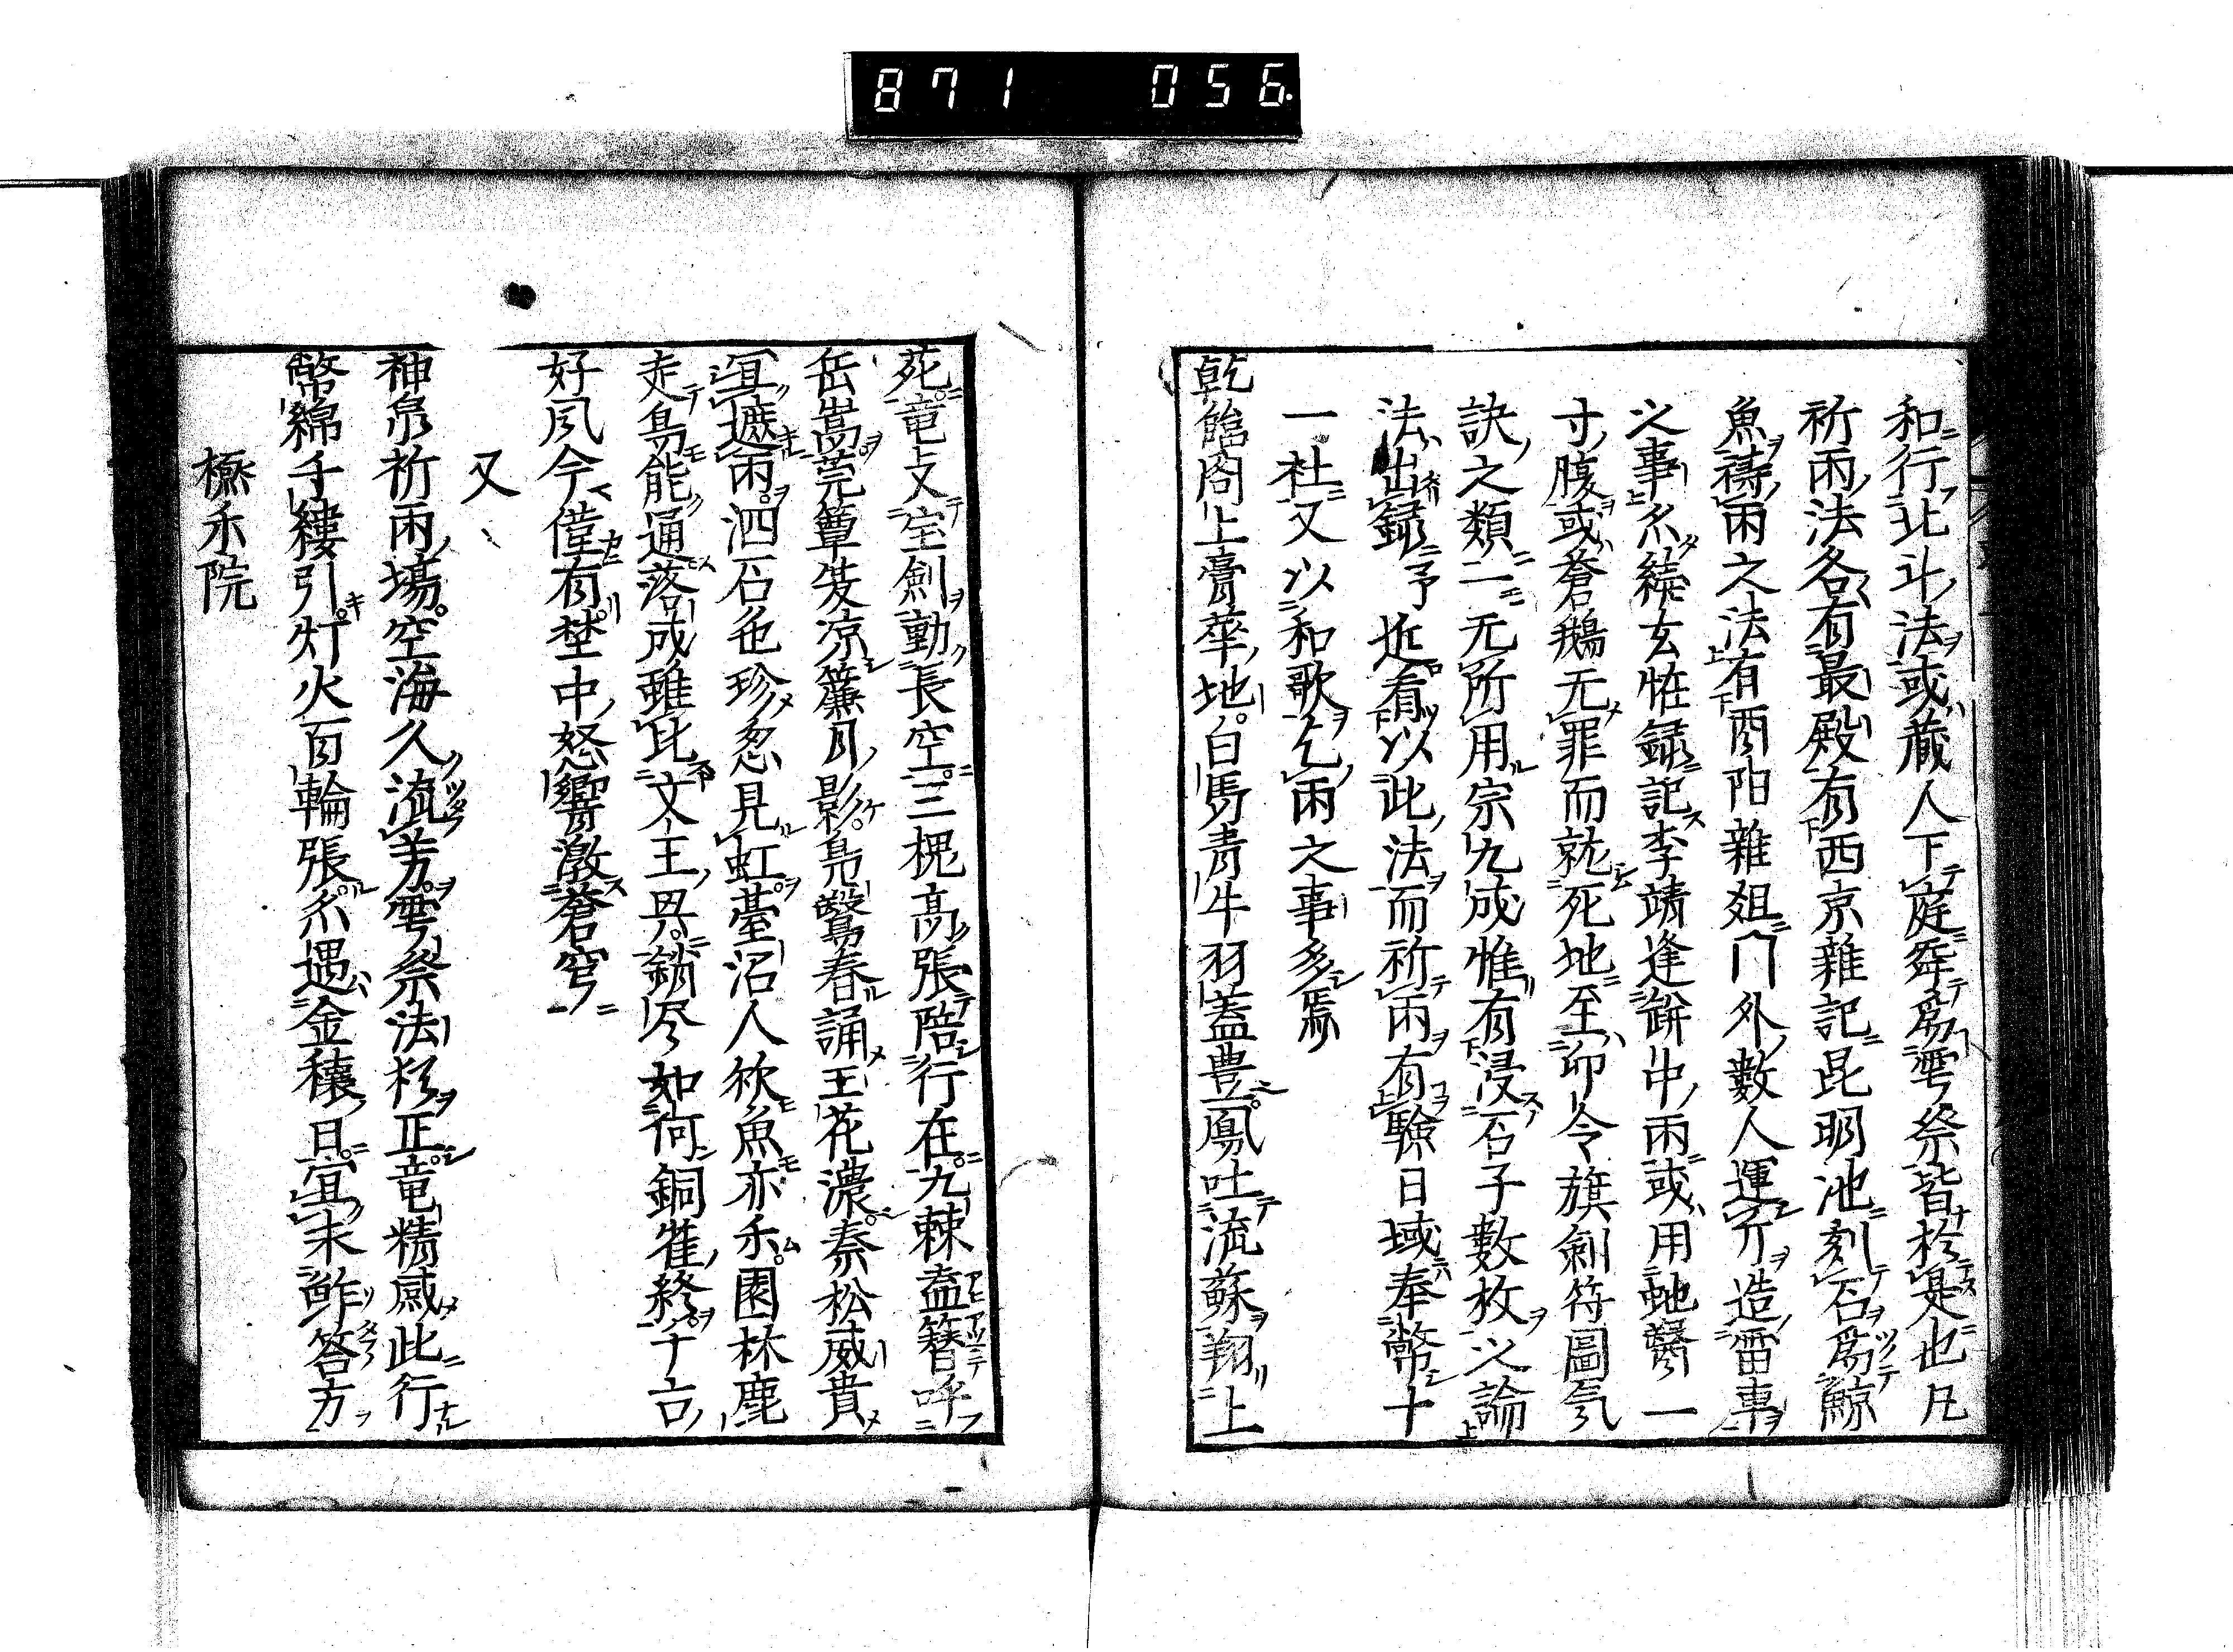 871 056
和行北斗法或藏人下庭舞為雩祭皆於是也凡
祈雨法各有最殿有西京雜記昆明池刻石為鯨
魚禱雨之法有酉陽雜俎門外數人運斤造雷車
之事糸續玄怪録記李靖逢瓶中雨或用虵醫一
寸腹或蒼鵝无罪而就死地至印令旗劍符圖気
訣之類二无所用宗九成惟有浸石子數枚以論
法出録予近看以此法而祈雨有驗日域奉幣十
一社又以和歌乞雨之事多焉
乾臨閣上膏華地白馬青牛羽蓋豊鳳吐流蘇翔上
苑竜支宝劍動長空三槐高張陪行在九棘盍簪呼
岳嵩莞簟炎涼簾月影鳬鷖春誦王花濃秦松威賁
宜遮雨泗石色珍忽見虹臺沼人欣魚亦禾園林鹿
走鳥能通落成雖比文王男銷尽如何銅雀終千古
好風今僅有埜中怒響激蒼穹
又
神泉祈雨場空海久流芳雩祭法於正竜精感此行
幣綿千縷引灯火百輪張糸遇金穰日宜未酢答方
極禾院